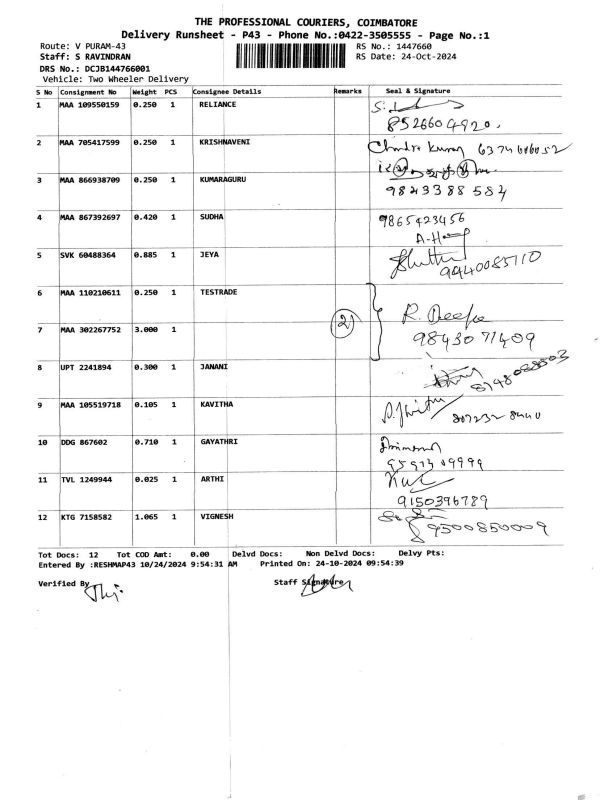 THE PROFESSIONAL COURIERS, COIMBATORE
Delivery Runsheet - P43 - Phone No.:0422-3505555 - Page No.:1
Route: V PURAM-43 RS No.: 1447660
Staff: S RAVINDRAN RS Date: 24-Oct-2024
DRS No.: DCJB144766001
Vehicle: Two Wheeler Delivery
S No Consignment No Weight PCS Consignee Details Remarks Seal & Signature
1 MAA 109550159 0.250 1 RELIANCE
8526604920.
2 MAA 705417599 0.250 1 KRISHNAVENI Chandra Kumar
3 MAA 866938709 0.250 1 KUMARAGURU
9843388584
4 MAA 867392697 0.420 1 SUDHA 9865423456
5 SVK 60488364 0.885 1 JEYA
9940085110
6 MAA 110210611 0.250 1 TESTRADE R. Deepa
7 MAA 302267752 3.000 1 2 9843071409
8 UPT 2241894 0.300 1 JANANI
9 MAA 105519718 0.105 1 KAVITHA
10 DDG 867602 0.710 1 GAYATHRI
11 TVL 1249944 0.025 1 ARTHI
9150396789
12 KTG 7158582 1.065 1 VIGNESH
9500850009
Tot Docs: 12 Tot COD Amt: 0.00 Delvd Docs: Non Delvd Docs: Delvy Pts:
Entered By :RESHMAP43 10/24/2024 9:54:31 AM Printed On: 24-10-2024 09:54:39
Verified By Staff Signature